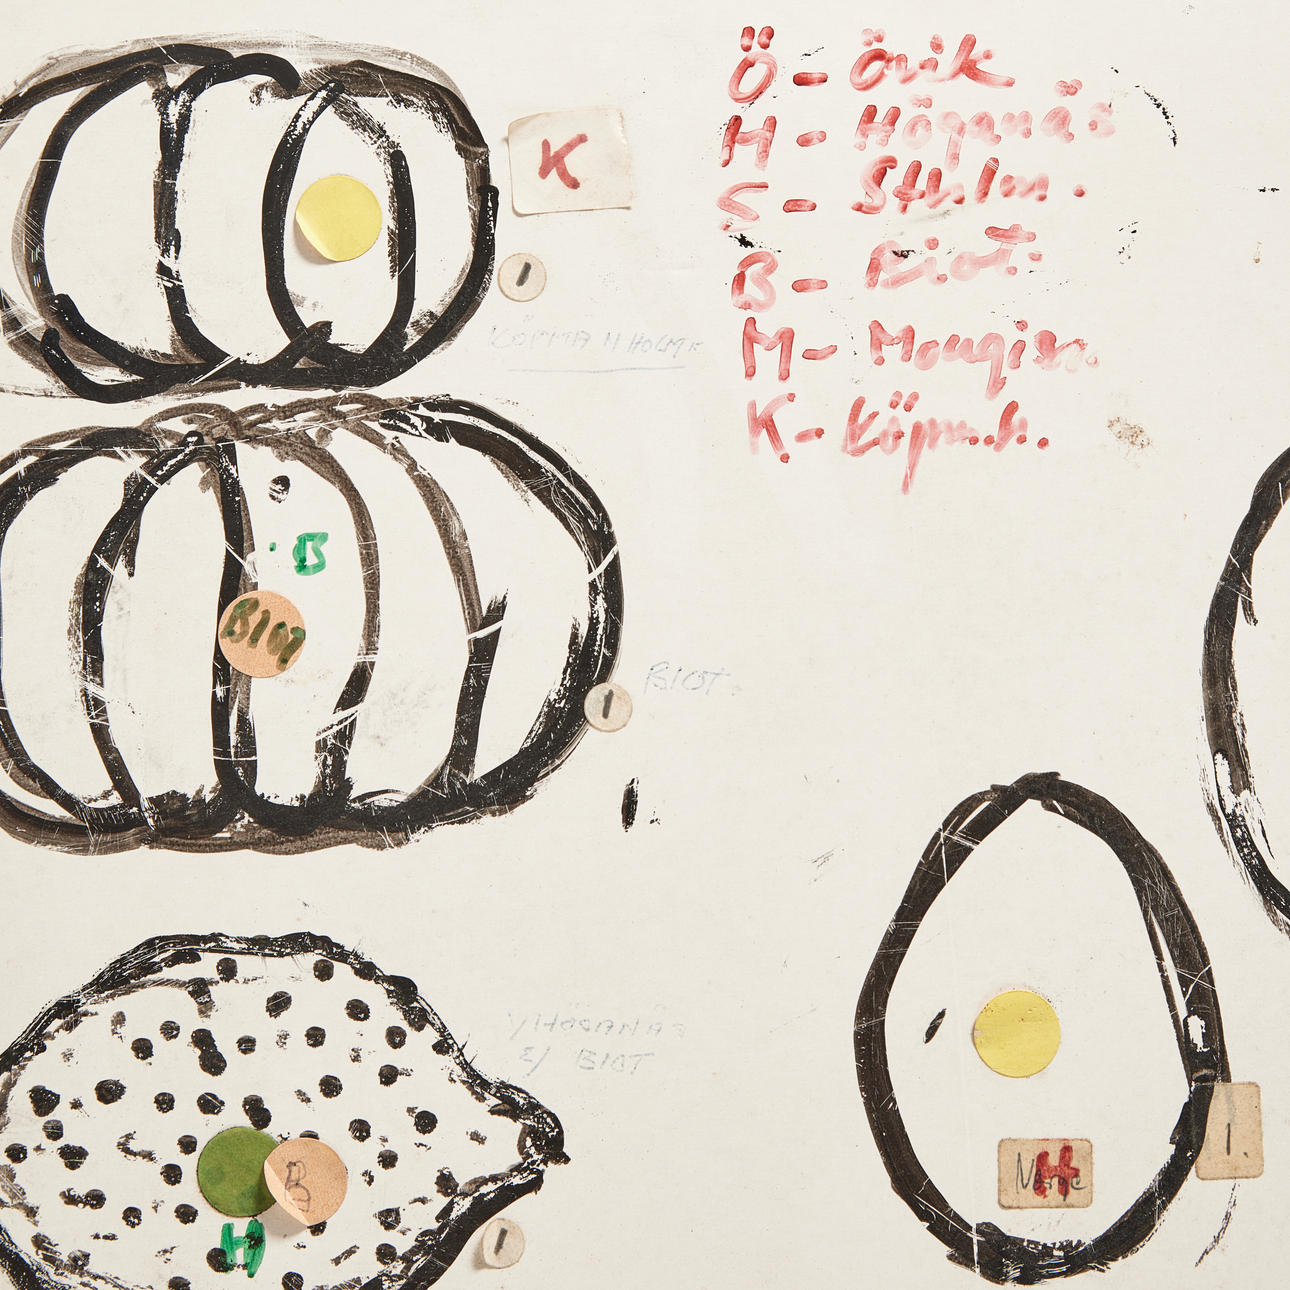 Ö - Övik
H - Höganäs
S - Sthlm.
B - Biot.
M - Mougins.
K - Köpm.h.
K
I
KÖPMANHOLME
B
BIOT
I
BIOT
1/HÖGANÄS
2/ BIOT
B
H
I
Norge
H
1.